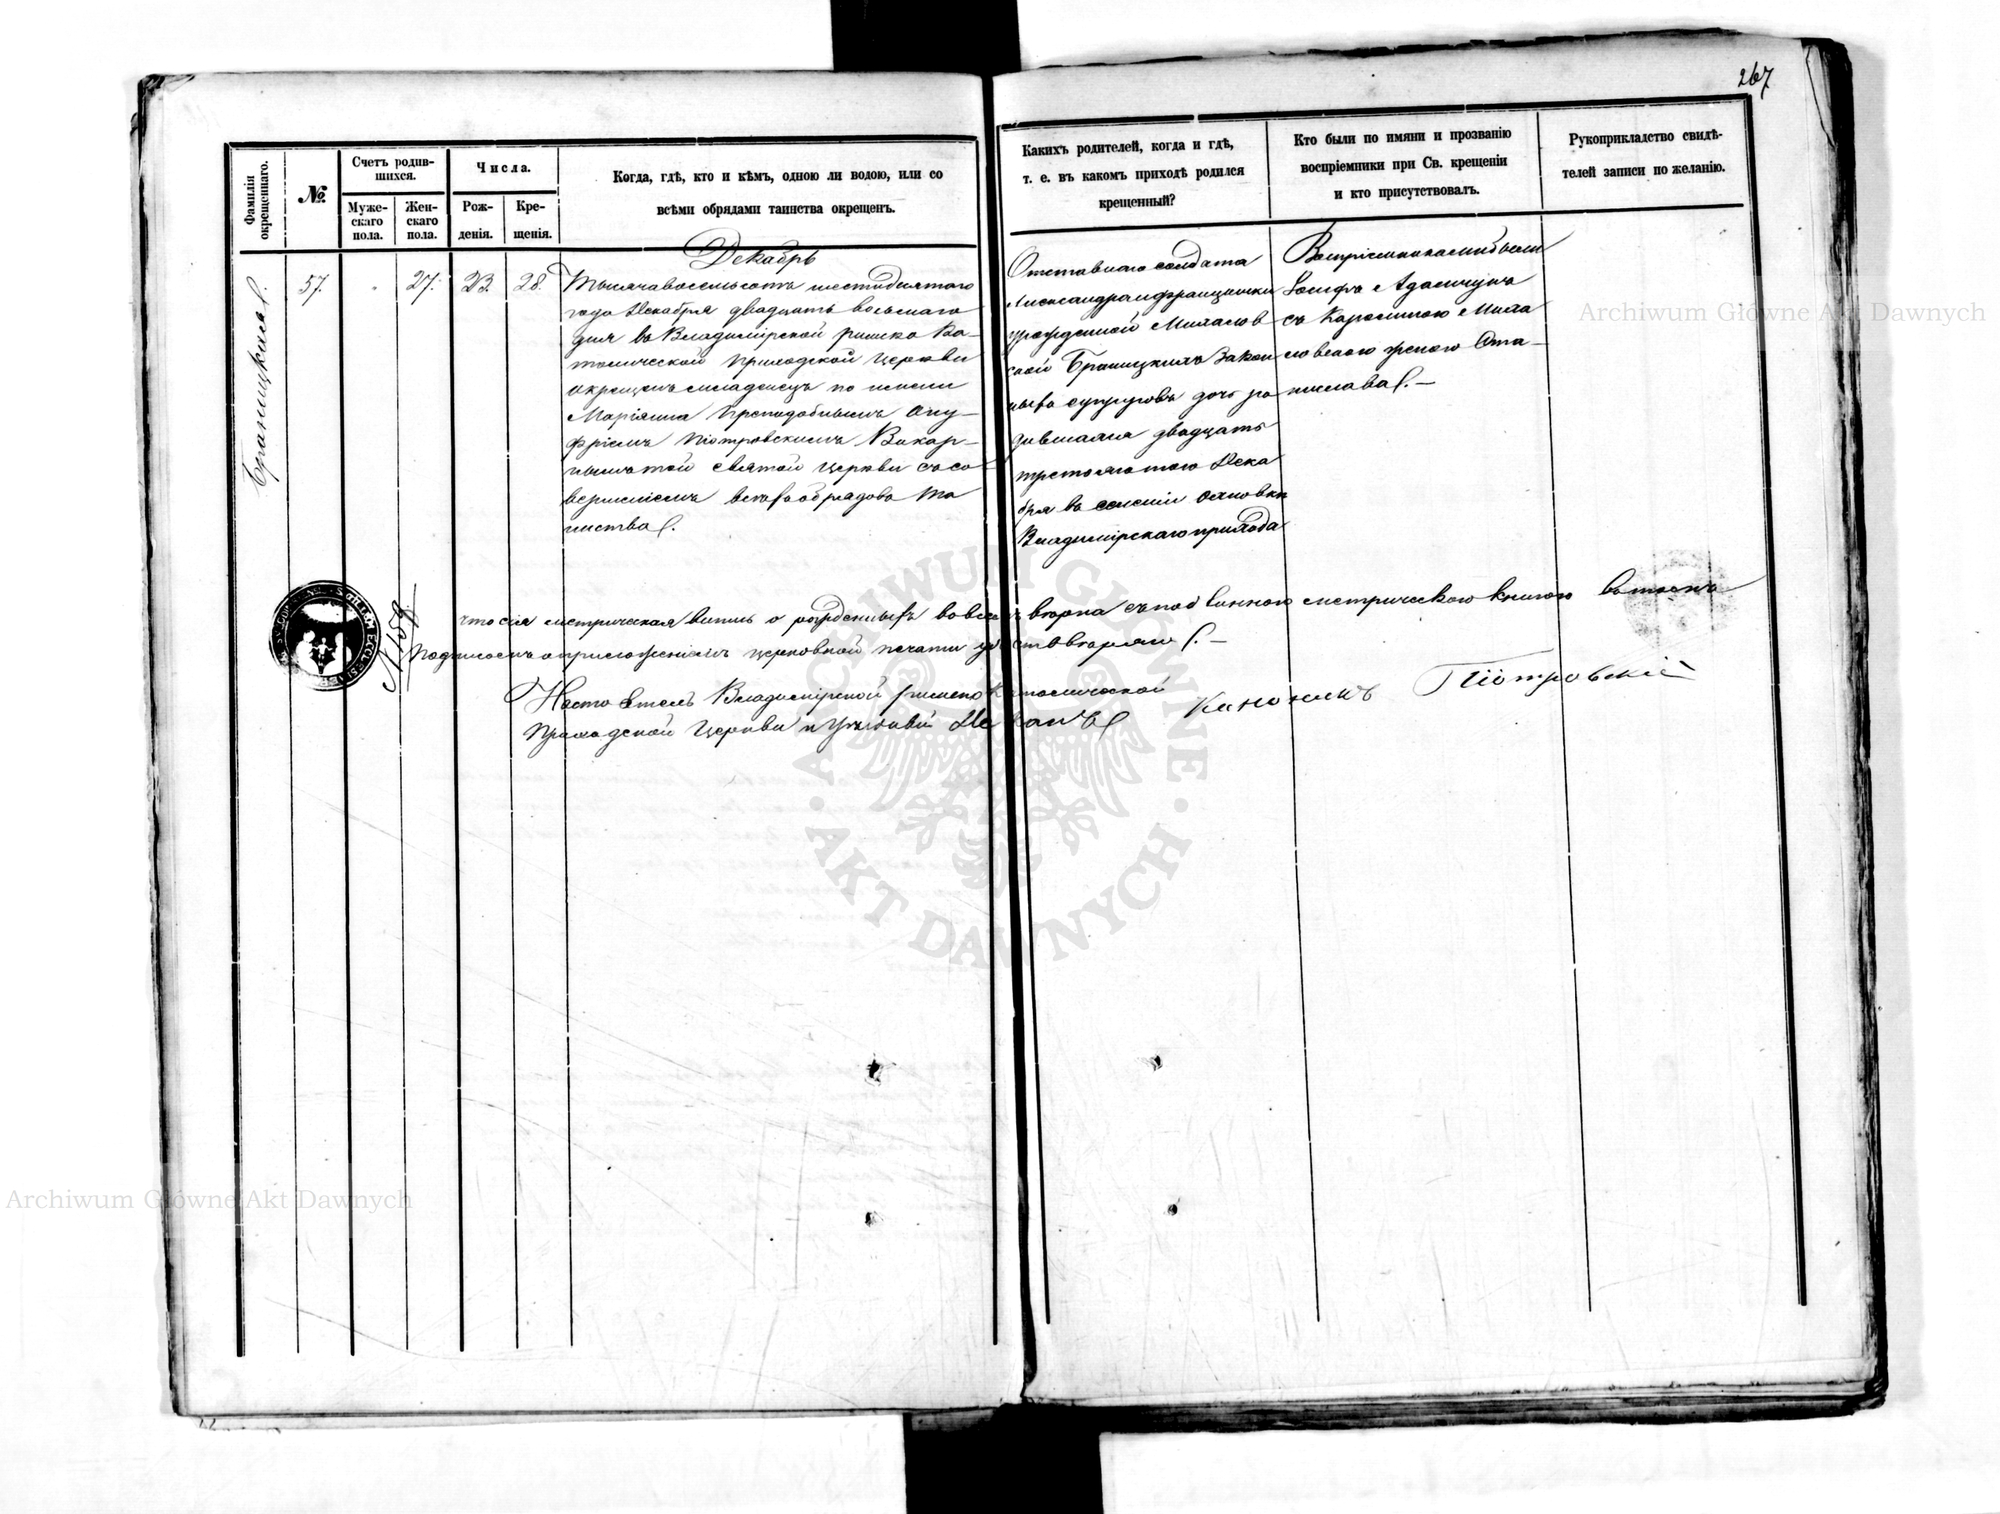 267
Фамилія окрещеннаго.
№
Счетъ родив-
шихся.
Муже-
скаго
пола.
Жен-
скаго
пола.
Числа.
Рож-
денія.
Кре-
щенія.
Когда, гдѣ, кто и кѣмъ, одною ли водою, или со
всѣми обрядами таинства окрещенъ.
Какихъ родителей, когда и гдѣ,
т. е. въ какомъ приходѣ родился
крещенный?
Кто были по имяни и прозванію
воспріемники при Св. крещеніи
и кто присутствовалъ.
Рукоприкладство свидѣ-
телей записи по желанію.
Декабрь
57.
27.
23.
28.
Тысяча восемьсотъ шестидесятого
года Декабря двадцать восьмаго
дня въ Владимірской римско Ка-
толической Приходской Церкви
окрещенъ младенецъ по имени
Маріянна Преподобнымъ Ону-
фріемъ Піотровскимъ Викар-
нымъ той святой Церкви съ со-
вершеніемъ всѣхъ обрядовъ Та
инства.
Отставнаго солдата
Александра и Францишки
урожденной Михалов
ской Браницкихъ закон
ныхъ супруговъ дочь ро
дившаяся двадцать
третьяго того Дека
бря въ селеніи
Владимірскаго прихода
Воспріемниками были
Іосифъ Адамчукъ
съ Каролиною Миха
ловскою женою Ста-
нислава.—
что сія метрическая выпись о рожденныхъ во всемъ вѣрна съ подлинною метрическою книгою въ томъ
Подписомъ и приложеніемъ церковной печати удостовѣряю.—
Настоятель Владимірской римско Католической
Приходской Церкви и Деканъ
Каноникъ Піотровскій
ARCHIWUM GŁÓWNE · AKT DAWNYCH ·
Archiwum Główne Akt Dawnych
Archiwum Główne Akt Dawnych